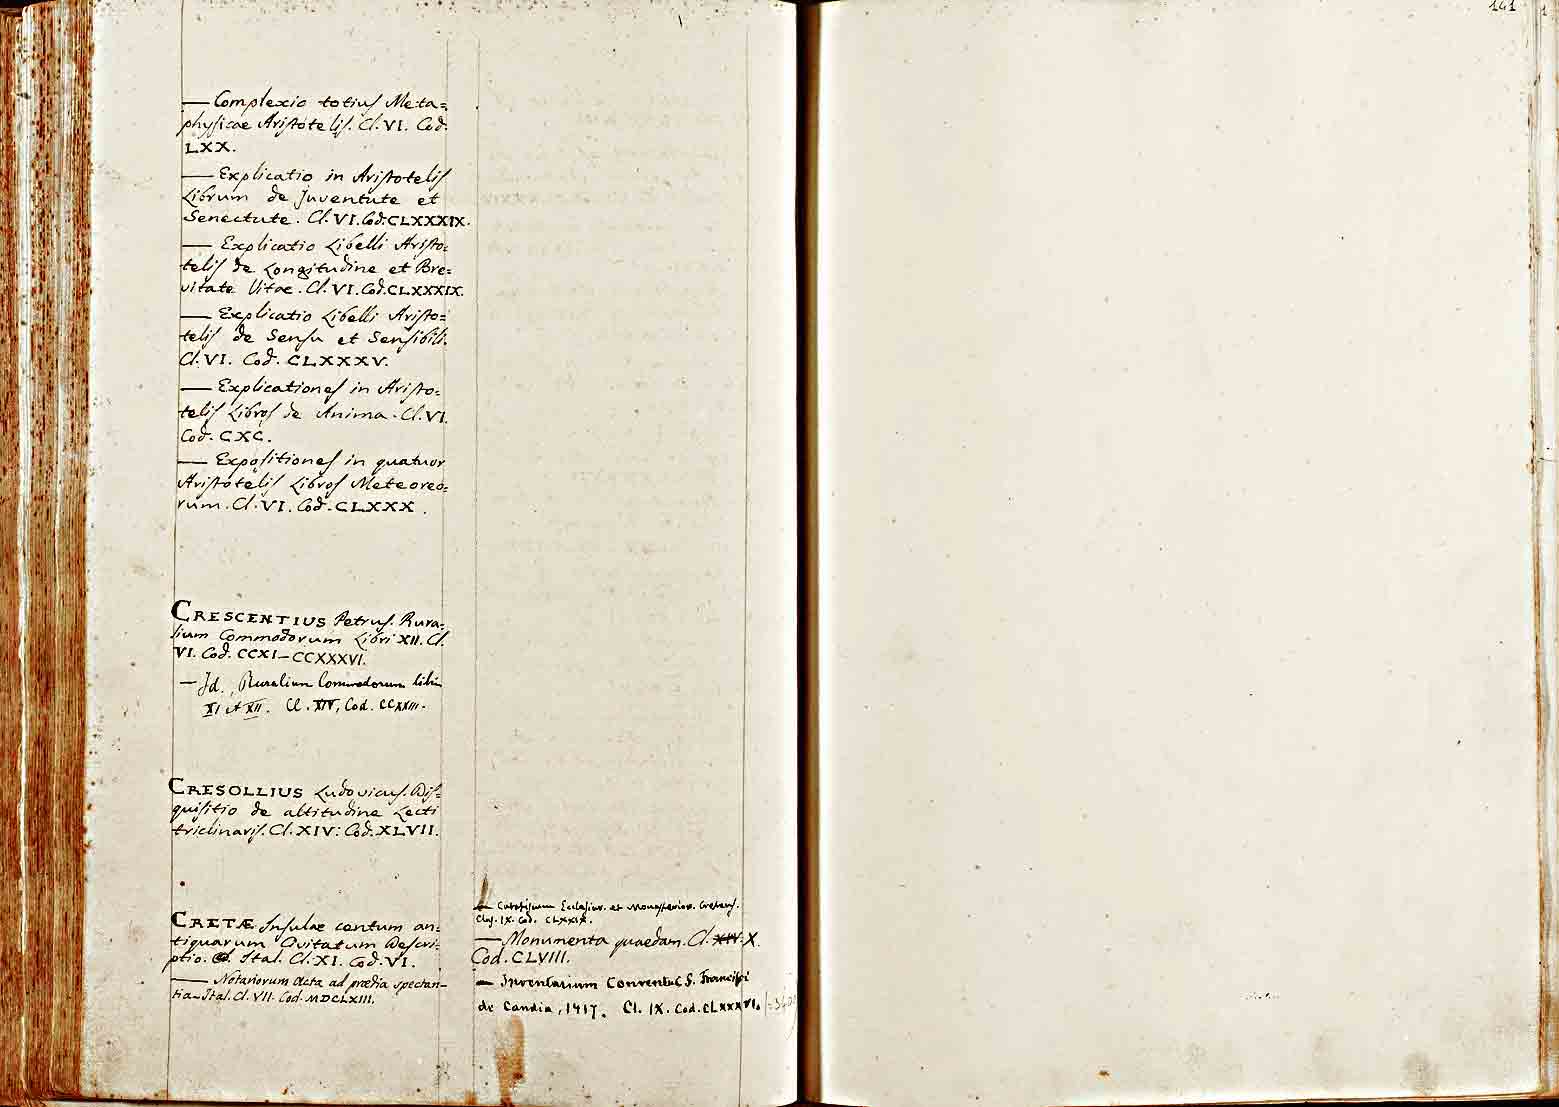 — Complexio totius Meta=
physicae Aristotelis. Cl. VI. Cod.
LXX.
— Explicatio in Aristotelis
Librum de Juventute et
Senectute. Cl. VI. Cod. CLXXXIX.
— Explicatio Libelli Aristo=
telis de Longitudine et Bre=
vitate Vitae. Cl. VI. Cod. CLXXXIX.
— Explicatio Libelli Aristo=
telis de Sensu et Sensibili.
Cl. VI. Cod. CLXXXV.
— Explicationes in Aristo=
telis Libros de Anima. Cl. VI.
Cod. CXC.
— Expositiones in quatuor
Aristotelis Libros Meteoreo=
rum. Cl. VI. Cod. CLXXX.
CRESCENTIUS Petrus. Rura=
lium Commodorum Libri XII. Cl.
VI. Cod. CCXI–CCXXXVI.
— Id., Ruralium Commodorum libri
XI et XII. Cl. XIV, Cod. CCXXIII.
CRESOLLIUS Ludovicus. Dis=
quisitio de altitudine Lecti
tricliniaris. Cl. XIV: Cod. XLVII.
CRETÆ Insulae centum an=
tiquarum Civitatum Descri=
ptio. Ital. Cl. XI. Cod. VI.
— Notariorum Acta ad prædia spectan–
tia– Ital. Cl. VII. Cod. MDCLXIII.
— Catasticum Ecclesiar. et Monasterior. Cretens.
Clas. IX. Cod. CLXXIX.
— Monumenta quaedam. Cl. XIV. X.
Cod. CLVIII.
— Inventarium Conventus S. Francisci
de Candia, 1417. Cl. IX. Cod. CLXXXVI.
141